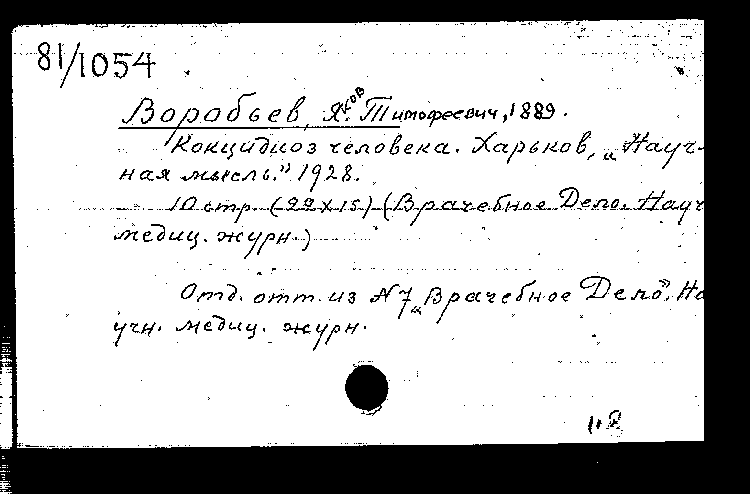 81/1054
Воробьев, Яков Тимофеевич, 1889.
Кокцидиоз человека. Харьков, „Науч-
ная мысль." 1928.
10 стр. (22 x 15) (Врачебное Дело. Науч
медиц. журн.)
Отд. отт. из N 7 „Врачебное Дело". На
учн. медиц. журн.